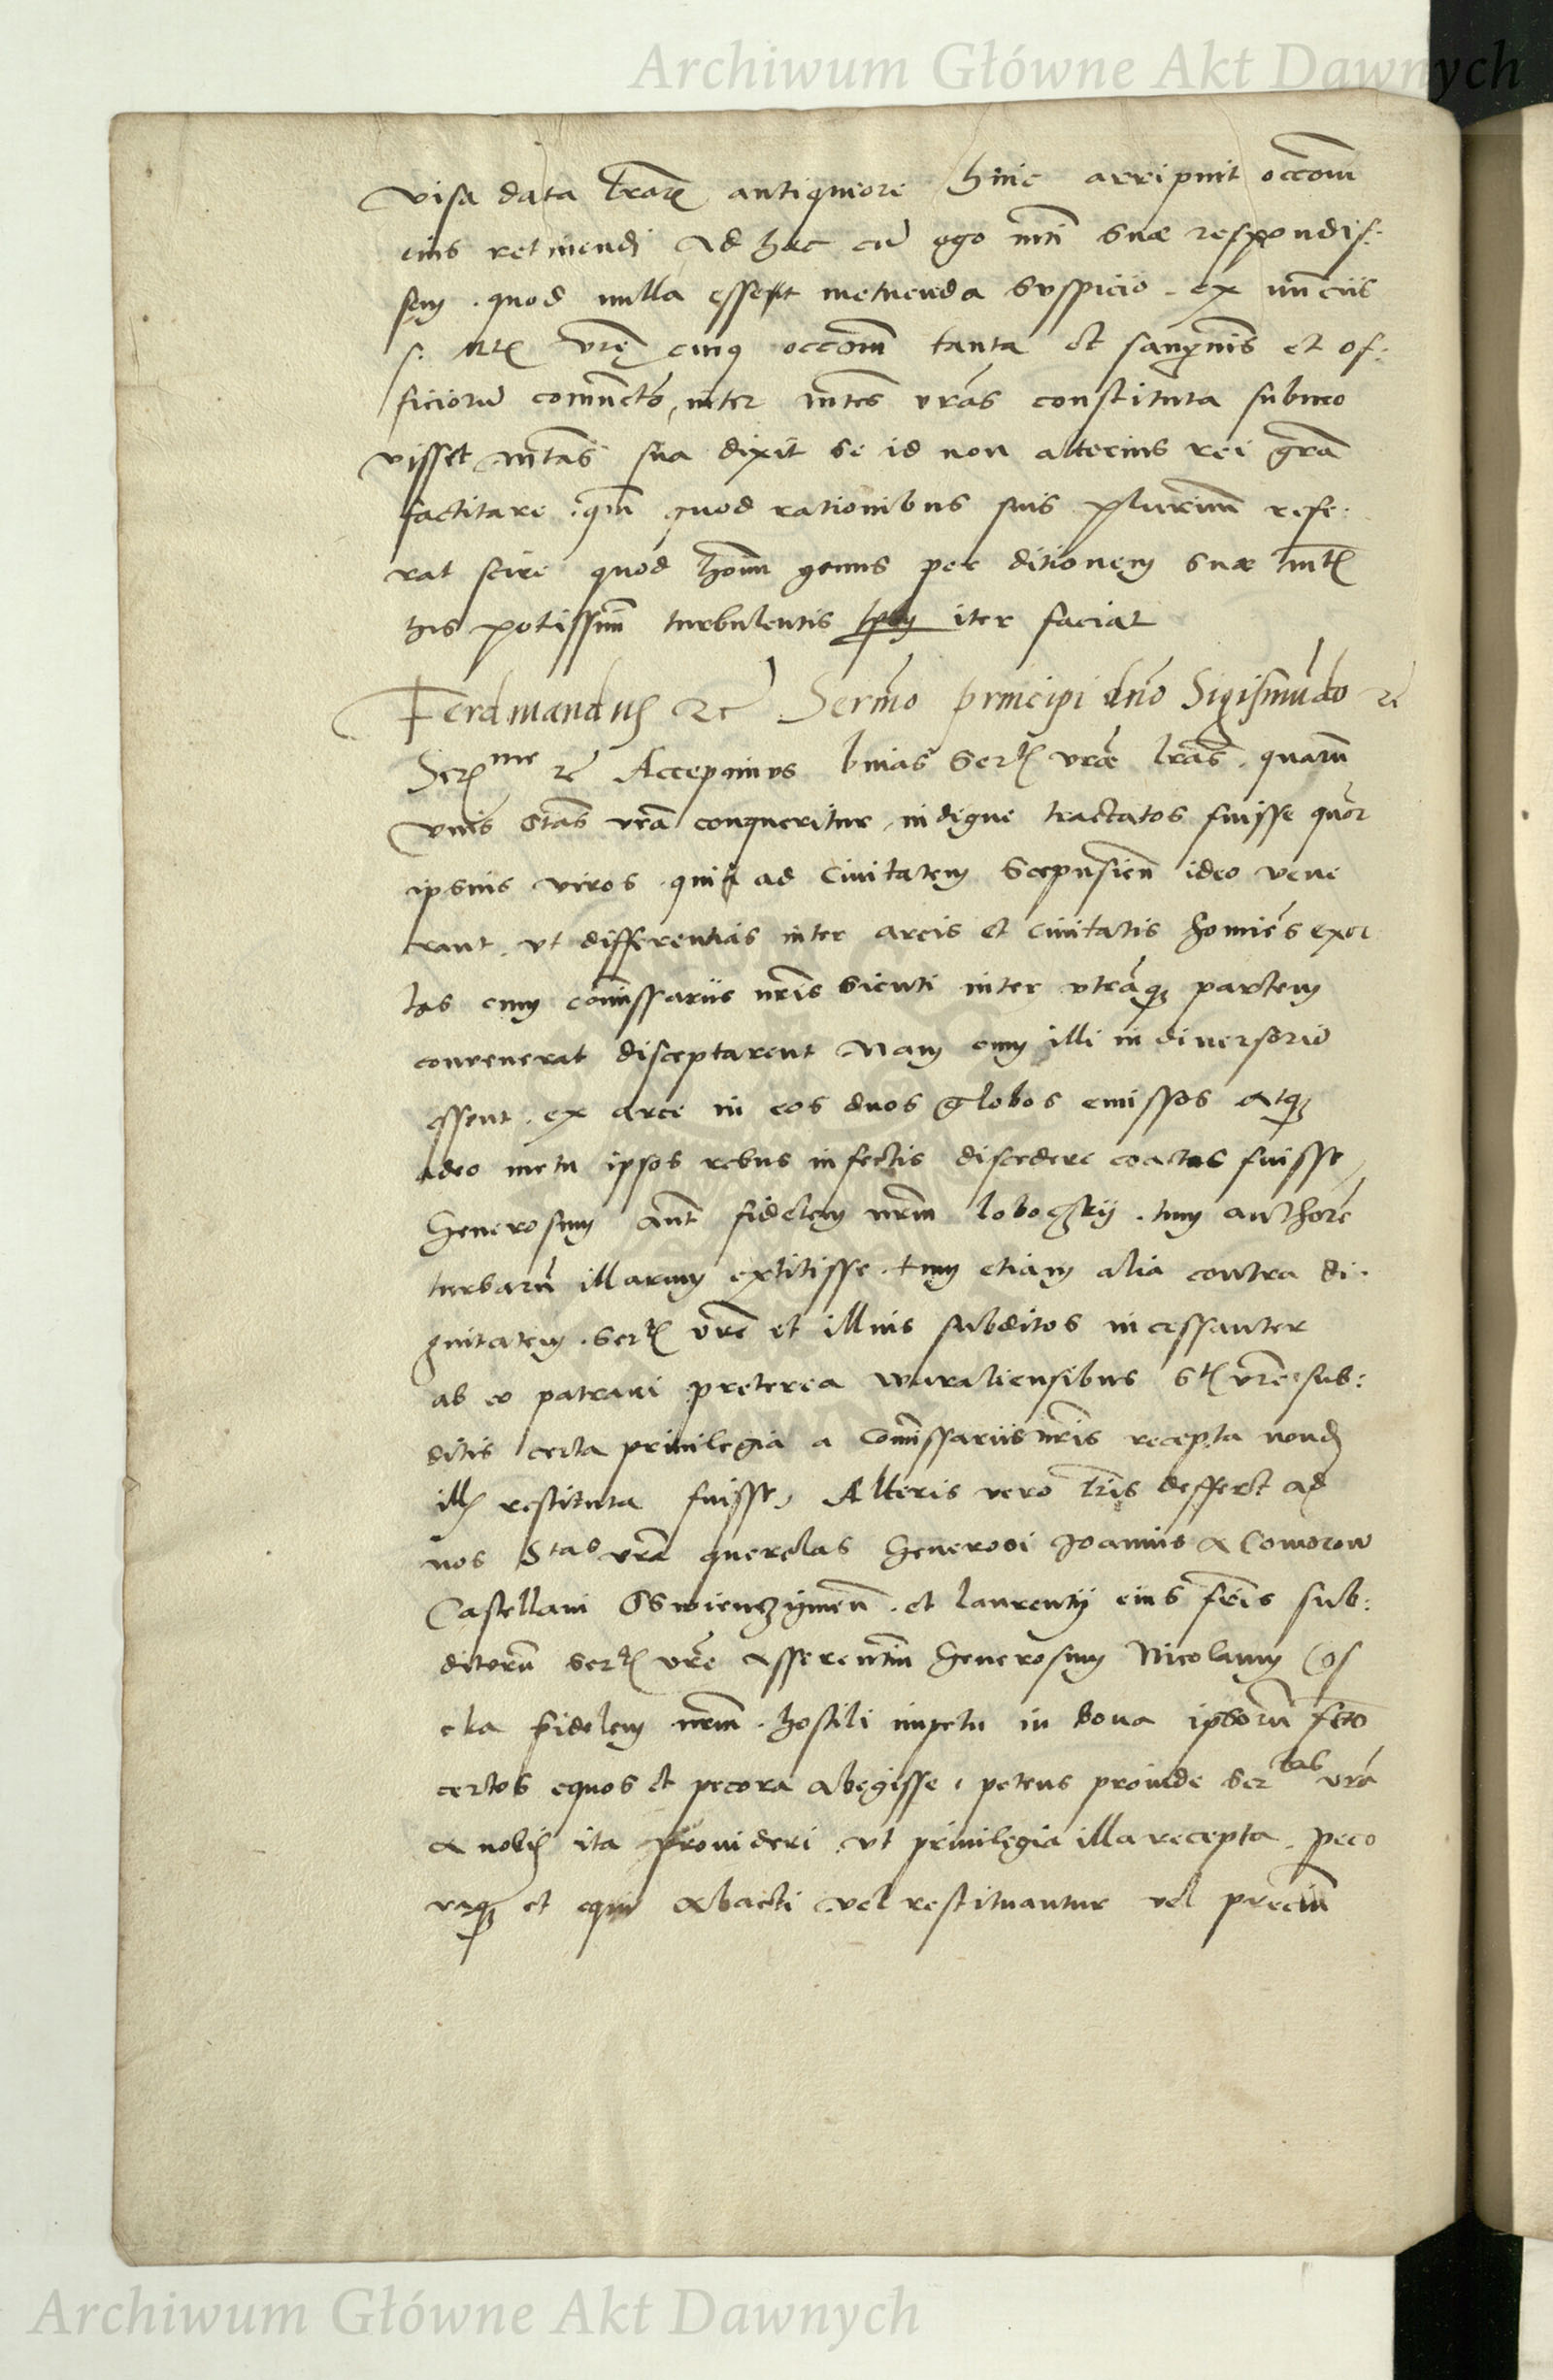 Archiwum Główne Akt Dawnych
visa data lrar̄ antiquiore hinc arripuit occōem
eius retinendi Ad hæc cū ego mti suæ respondis:
sem . quod nulla essent metuenda suspicio . ex nunciis
s. Mtis vrę cuius occōem tanta et sanguinis et of:
ficiorū coniunctō inter mtes vras constituta submo
visset mtas sua dixit se id non alterius rei grā
factitare qm̄ quod rationibus suis plurimū refe:
rat scire quod hōim genus per ditionem suæ mtis
his potissim̄ turbulentis tpby iter faciat
Ferdinandus etc Sermo principi dno Sigismūdo etc
Serme etc Accepimus binas Sertis vræ lras . quarū
unis Stas vra conqueritur indigne tractatos fuisse quor
ipsius viros . qui ad Civitatem Scepusien̄ ideo vene
rant . ut differentias inter arcis et civitatis homies exor
tas cum comissariis nris sicuti inter utrāq partem
convenerat disceptarent Nam cum illi in diversorio
essent . ex arce in eos duos globos emissos atq
adeo metu ipsos rebus infectis discedere coactos fuisse
Generosum aut fidelem nrm loboczkij . tum authorē
turbarū illarum extitisse . tum etiam alia contra di:
gnitatem . sertis vre et illius subditos incessanter
ab eo patrari preterea muraliensibus Stis vre sub:
ditis certa privilegia a Comissariis nris recepta nond
illis restituta fuisse, Alteris vero lris deffert ad
nos Stas vra querelas Generosi Joannis a Comorow
Castellani Oswienczimen̄ . et laurentij eius fris sub:
ditorū sertis vre asserentiu Generosum Nicolaum Cos
cka fidelem nrm . hostili impetu in bona ipsorū fcto
certos equos et pecora abegisse, petens proinde sertas vra
a nobis ita provideri ut privilegia illa recepta . peco
raq et equi abacti vel restituantur vel preciū
Archiwum Główne Akt Dawnych